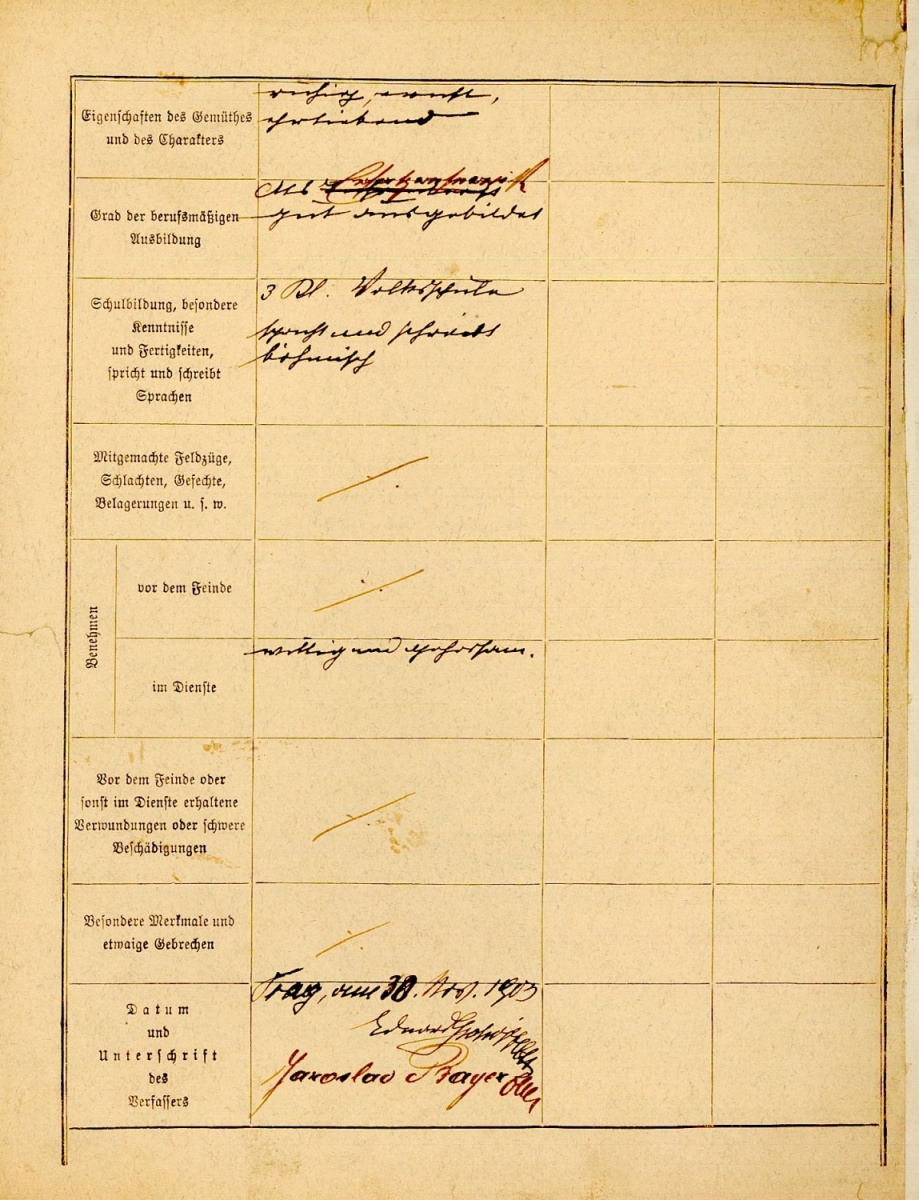 Eigenschaften des Gemüthes
und des Charakters
ruhig, ernst,
ehrliebend
Grad der berufsmäßigen
Ausbildung
Als
gut ausgebildet
Schulbildung, besondere
Kenntnisse
und Fertigkeiten,
spricht und schreibt
Sprachen
3 Kl. Volksschule
spricht und schreibt
böhmisch
Mitgemachte Feldzüge,
Schlachten, Gefechte,
Belagerungen u. s. w.
Benehmen
vor dem Feinde
im Dienste
willig und gehorsam.
Vor dem Feinde oder
sonst im Dienste erhaltene
Verwundungen oder schwere
Beschädigungen
Besondere Merkmale und
etwaige Gebrechen
Datum
und
Unterschrift
des
Verfassers
Prag, am 30. Nov. 1903
Eduard
Jaroslav Bayer